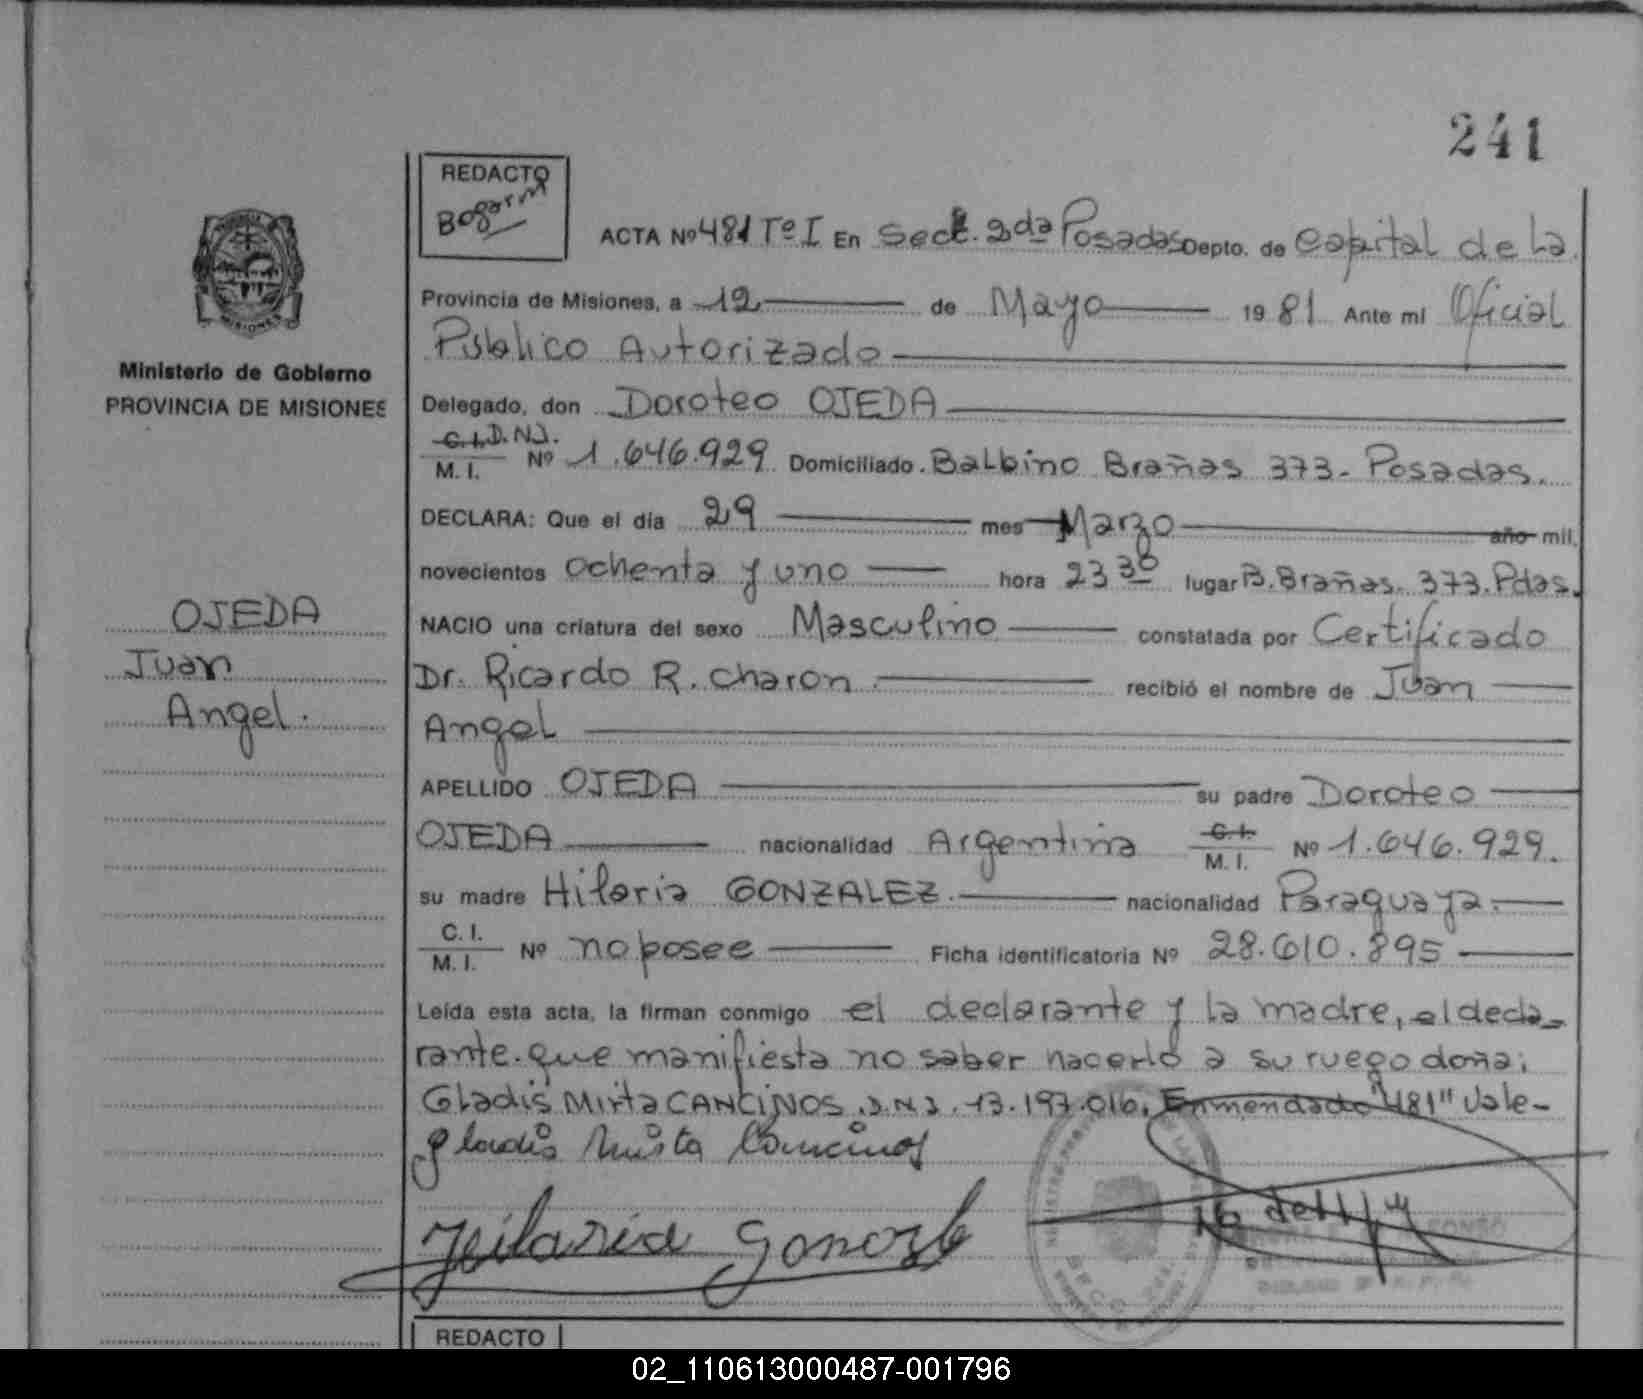 241
REDACTO
Bogarin
ACTA Nº 481 Tº I En Secc. 2da Posadas Depto. de Capital de La
Provincia de Misiones, a 12 de Mayo 1981 Ante mi Oficial
Publico Autorizado
Ministerio de Gobierno
PROVINCIA DE MISIONES
Delegado, don Doroteo OJEDA
C.I. D.N.I.
M. I. Nº 1.646.929 Domiciliado. Balbino Brañas 373- Posadas.
DECLARA: Que el día 29 mes Marzo año mil
novecientos ochenta y uno hora 23 30 lugar B. Brañas. 373. Pdas.
OJEDA
Juan
Angel.
NACIO una criatura del sexo Masculino constatada por Certificado
Dr. Ricardo R. Charon. recibió el nombre de Juan
Angel
APELLIDO OJEDA su padre Doroteo
OJEDA nacionalidad Argentina C.I. M. I. Nº 1.646.929.
su madre Hilaria GONZALEZ. nacionalidad Paraguaya.
C. I.
M. I. Nº no posee Ficha identificatoria Nº 28.610.895
Leída esta acta, la firman conmigo el declarante y la madre, el decla-
rante. que manifiesta no saber hacerlo a su ruego doña;
Gladis Mirta CANCINOS. D.N.I. 13.197.016. Enmendado "481" Vale-
Gladis Mirta Cancinos
Hilaria Gonzale
MISIONES
REDACTO
02_110613000487-001796